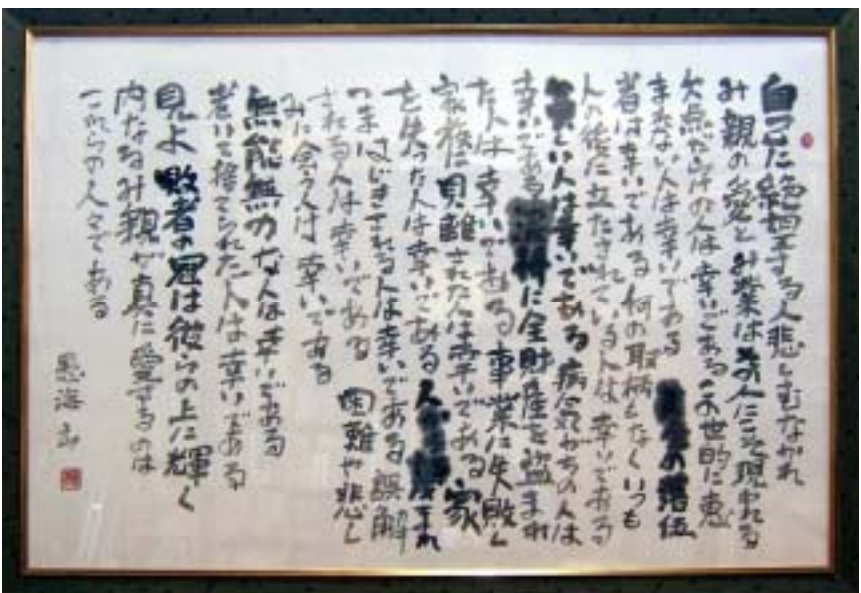 自己に絶望する人悲しむなかれ
み親の愛とみ業はその人にこそ現われる
欠点だらけの人は幸いである この世的に恵
まれない人は幸いである の落伍
者は幸いである 何の取柄もなくいつも
人の後に立たされている人は幸いである
貧しい人は幸いである 病気がちの人は
幸いである に全財産を盗まれ
た人は幸いである 事業に失敗し
家族に見離された人は幸いである 家
を失った人は幸いである 人
つまはじきされる人は幸いである 誤解
される人は幸いである 困難や悲し
みに会う人は幸いである
無能無力な人は幸いである
老いて捨てられた人は幸いである
見よ 敗者の冠は彼らの上に輝く
内なるみ親が真に愛するのは
これらの人々である
愚海